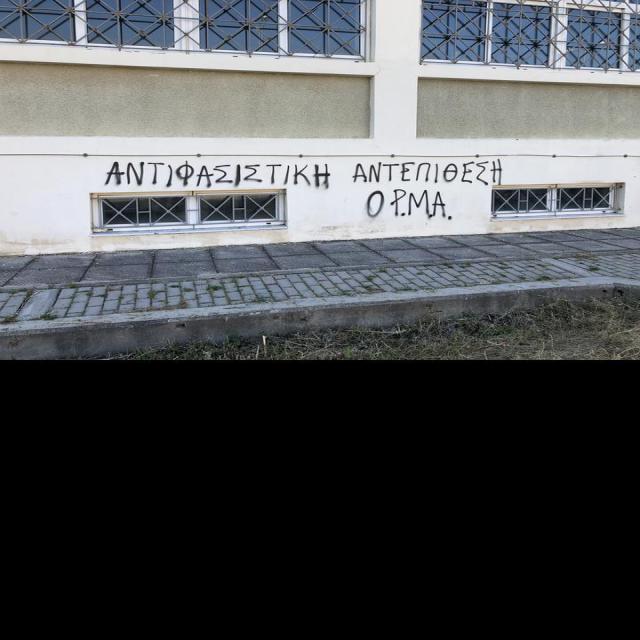 ΑΝΤΙΦΑΣΙΣΤΙΚΗ ΑΝΤΕΠΙΘΕΣΗ
Ο Ρ.ΜΑ.